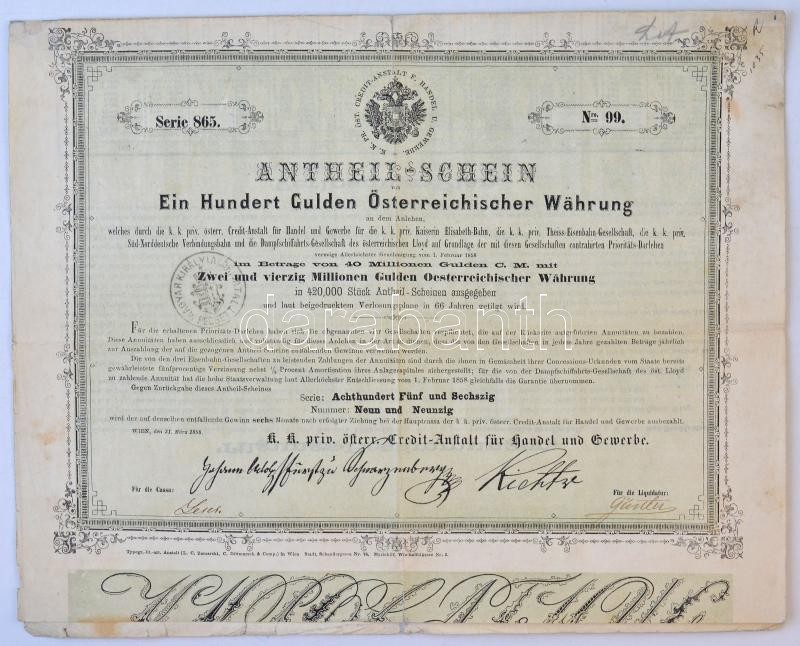 K. K. PR. ÖST. CREDIT-ANSTALT F. HANDEL U. GEWERBE.
Serie 865.
Nro. 99.
ANTHEIL-SCHEIN
von
Ein Hundert Gulden Österreichischer Währung
an dem Anlehen,
welches durch die k. k. priv. österr. Credit-Anstalt für Handel und Gewerbe für die k. k. priv. Kaiserin Elisabeth-Bahn, die k. k. priv. Theiss-Eisenbahn-Gesellschaft, die k. k. priv.
Süd-Norddeutsche Verbindungsbahn und die Dampfschiffahrts-Gesellschaft des österreichischen Lloyd auf Grundlage der mit diesen Gesellschaften contrahirten Prioritäts-Darlehen
vermöge Allerhöchster Genehmigung vom 1. Februar 1858
im Betrage von 40 Millionen Gulden C. M. mit
Zwei und vierzig Millionen Gulden Oesterreichischer Währung
in 420,000 Stück Antheil-Scheinen ausgegeben
und laut beigedrucktem Verlosungsplane in 66 Jahren getilgt wird.
MAGYAR KIRÁLYI
darabanth
Für die erhaltenen Prioritäts-Darlehen haben sich die obgenannten vier Gesellschaften verpflichtet, die auf der Rückseite aufgeführten Annuitäten zu bezahlen.
Diese Annuitäten haben ausschliesslich zur Rückzahlung dieses Anlehens in der Art zu dienen, dass die von den Gesellschaften in jedem Jahre gezahlten Beträge jährlich
zur Auszahlung der auf die gezogenen Antheil-Scheine entfallenden Gewinne verwendet werden.
Die von den drei Eisenbahn-Gesellschaften zu leistenden Zahlungen der Annuitäten sind durch die ihnen in Gemässheit ihrer Concessions-Urkunden vom Staate bereits
gewährleistete fünfprocentige Verzinsung nebst 1/5 Procent Amortisation ihres Anlagscapitals sichergestellt; für die von der Dampfschiffahrts-Gesellschaft des öst. Lloyd
zu zahlende Annuität hat die hohe Staatsverwaltung laut Allerhöchster Entschliessung vom 1. Februar 1858 gleichfalls die Garantie übernommen.
Gegen Zurückgabe dieses Antheil-Scheines
Serie: Achthundert Fünf und Sechszig
Nummer: Neun und Neunzig
wird der auf denselben entfallende Gewinn sechs Monate nach erfolgter Ziehung bei der Hauptcassa der k. k. priv. österr. Credit-Anstalt für Handel und Gewerbe ausbezahlt.
WIEN, den 31. März 1858.
K. K. priv. österr. Credit-Anstalt für Handel und Gewerbe.
Johann Adolf Fürst zu Schwarzenberg
Richter
Für die Cassa:
Für die Liquidatur: